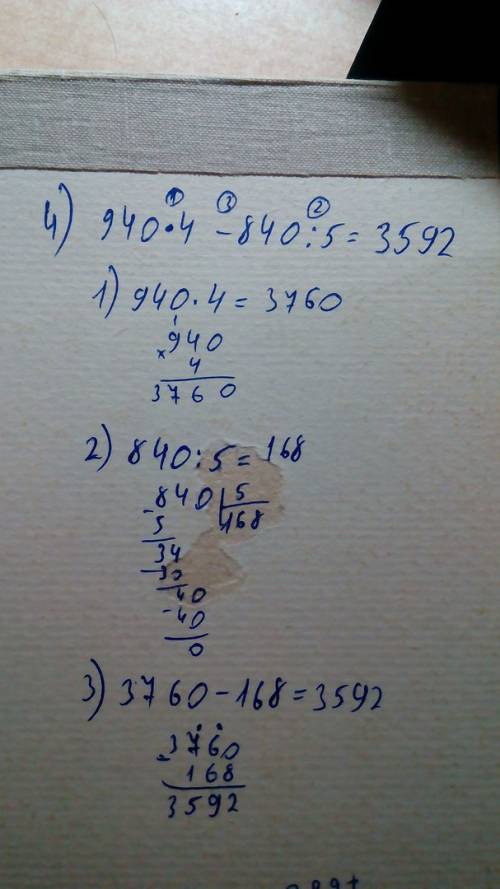 ① ③ ②
4) 940·4 - 840:5 = 3592
1) 940·4 = 3760
1
940
× 4
3760
2) 840:5 = 168
- 840 | 5
5 168
34
- 30
40
- 40
0
3) 3760 - 168 = 3592
3760
- 168
3592